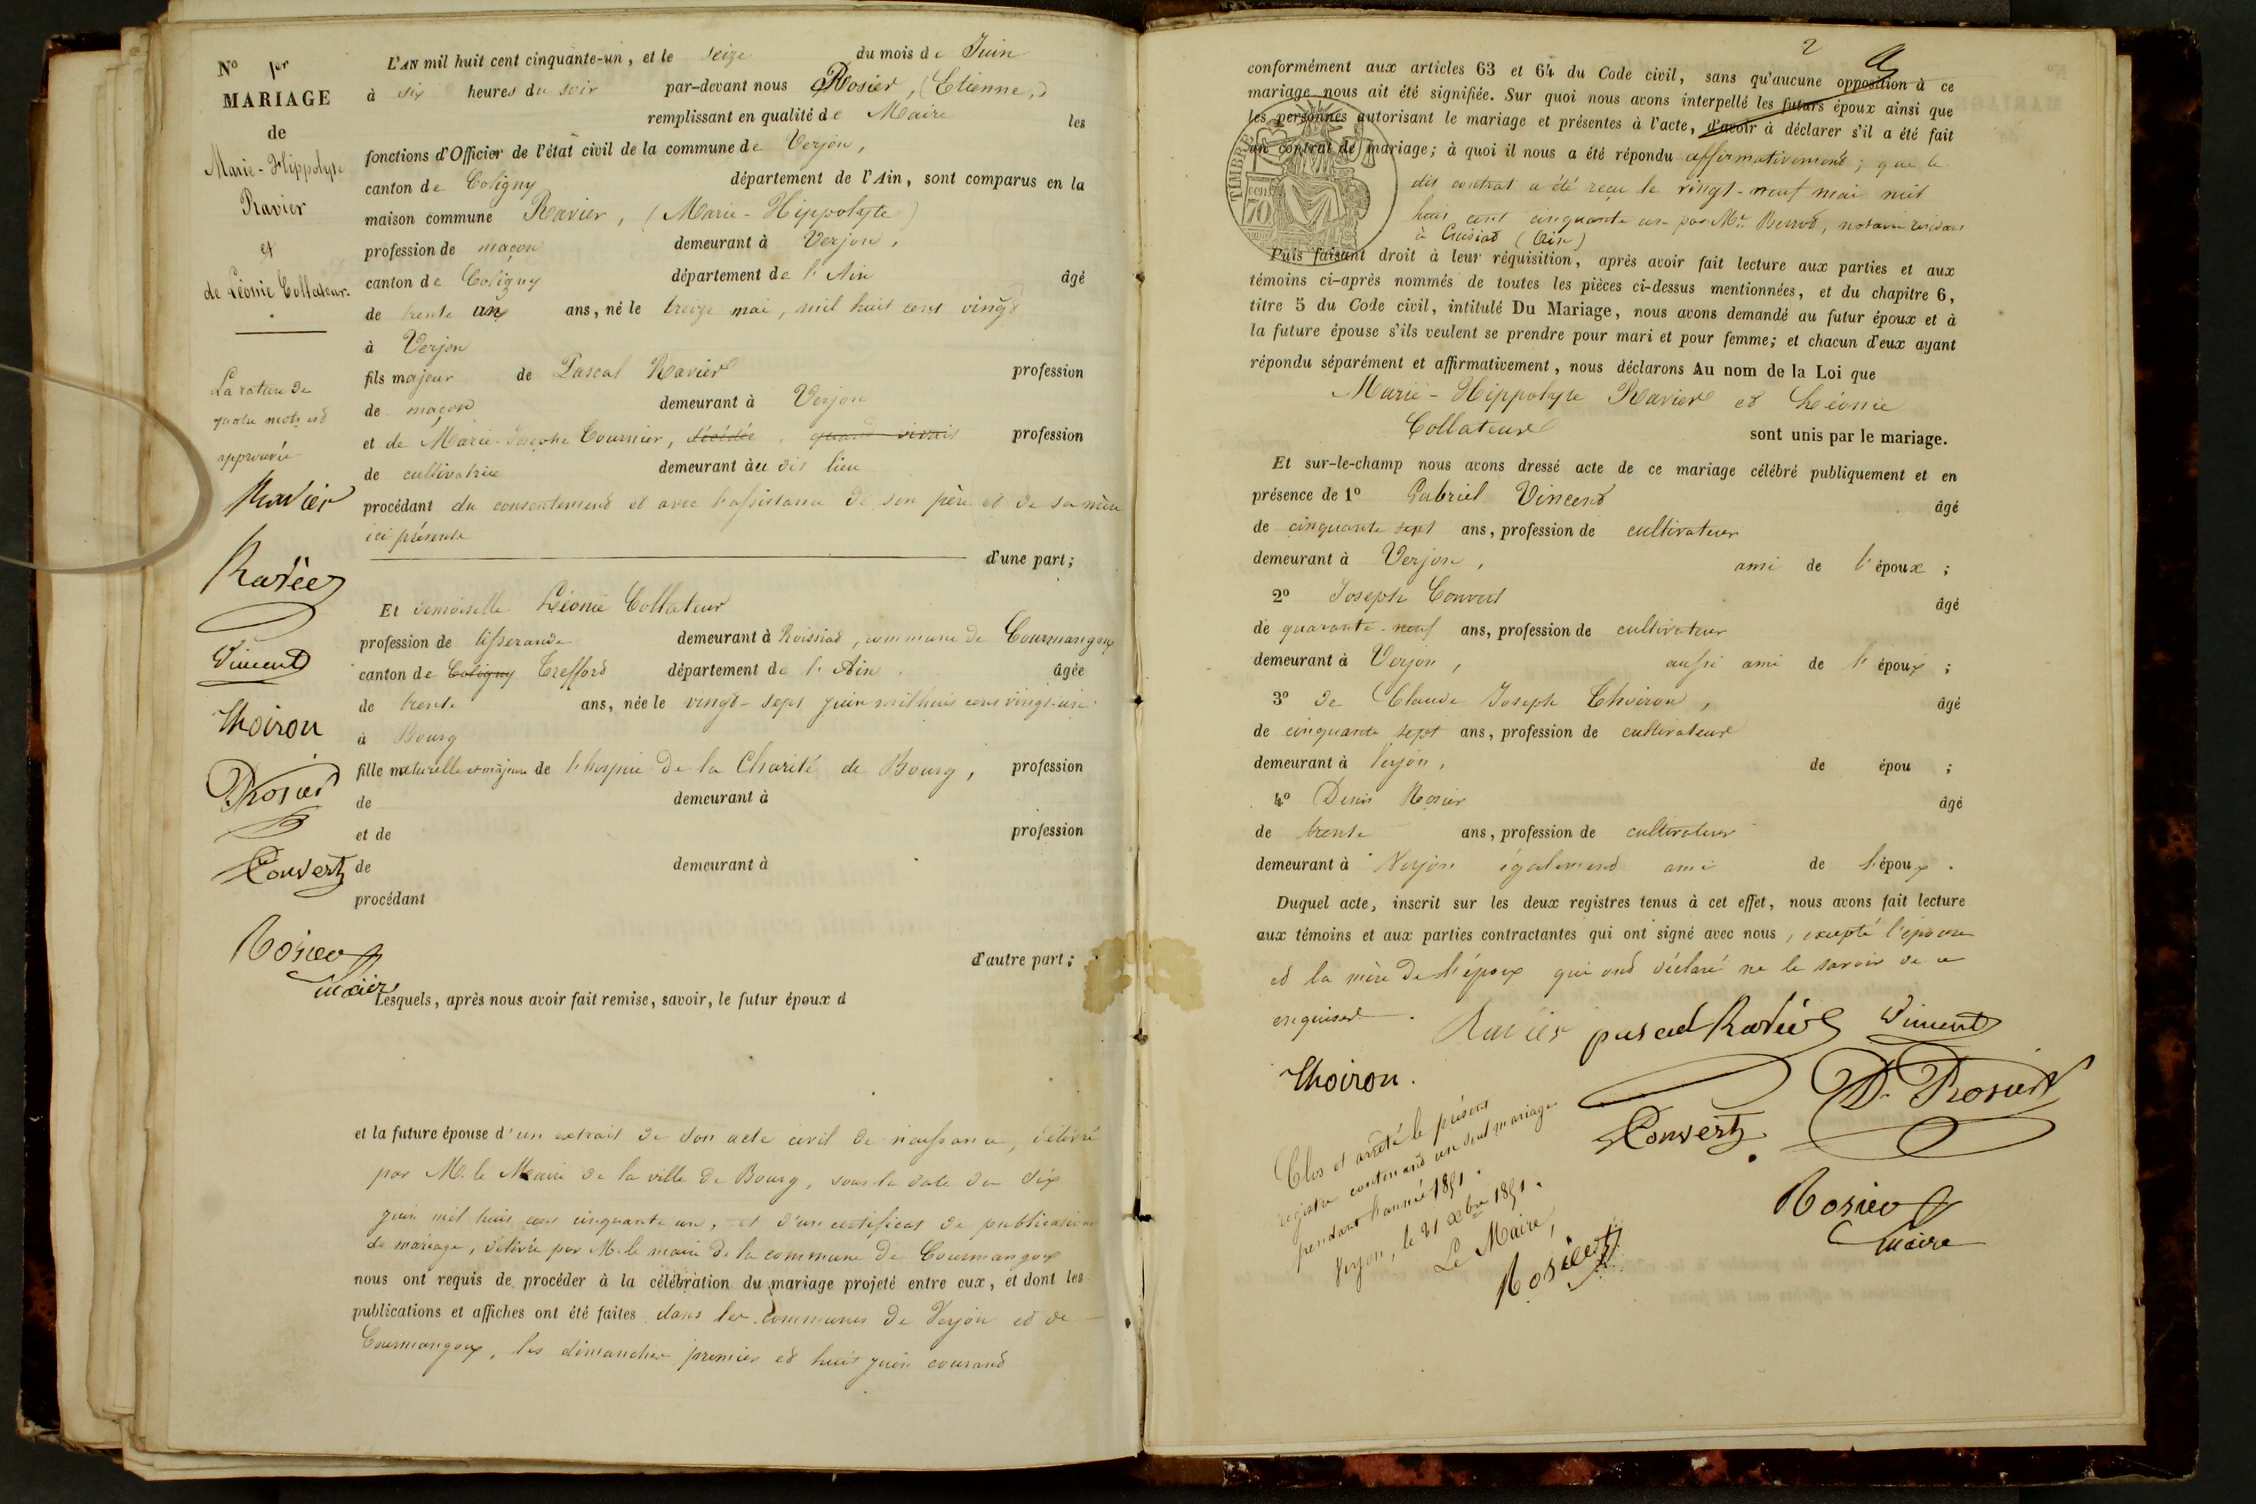 Nº 1er
MARIAGE
de
Marie-Hippolyte
Ravier
et
de Léonie Collateur.
La rature de
quatre mots est
approuvée
Ravier
Ravier
Vincent
Thoiron
D. Rosier
Convert
Rosier
maire
L'AN mil huit cent cinquante-un, et le seize du mois de Juin
à six heures du soir par-devant nous Rosier, (Etienne,)
remplissant en qualité de Maire les
fonctions d'Officier de l'état civil de la commune de Verjon,
canton de Coligny département de l'Ain, sont comparus en la
maison commune Ravier, (Marie-Hippolyte)
profession de maçon demeurant à Verjon,
canton de Coligny département de l'Ain âgé
de trente un ans, né le treize mai, mil huit cent vingt
à Verjon
fils majeur de Pascal Ravier profession
de maçon demeurant à Verjon
et de Marie-Josephe Cournier, décédée, quand vivait profession
de cultivatrice demeurant au dit lieu
procédant du consentement et avec l'assistance de son père et de sa mère
ici présents
d'une part;
Et demoiselle Léonie Collateur
profession de tisserande demeurant à Roissiat, commune de Courmangoux
canton de Coligny Treffort département de l'Ain. âgée
de trente ans, née le vingt-sept juin mil huit cent vingt-un
à Bourg
fille naturelle et majeure de l'hospice de la Charité de Bourg, profession
de demeurant à
et de profession
de demeurant à
procédant
d'autre part;
Lesquels, après nous avoir fait remise, savoir, le futur époux d
et la future épouse d'un extrait de son acte civil de naissance, délivré
par M. le Maire de la ville de Bourg, sous la date du dix
juin mil huit cent cinquante un, et d'un certificat de publication
de mariage, délivré par M. le maire de la commune de Courmangoux
nous ont requis de procéder à la célébration du mariage projeté entre eux, et dont les
publications et affiches ont été faites dans les communes de Verjon et de
Courmangoux, les dimanches premier et huit juin courant
2
conformément aux articles 63 et 64 du Code civil, sans qu'aucune opposition à ce
mariage nous ait été signifiée. Sur quoi nous avons interpellé les futurs époux ainsi que
les personnes autorisant le mariage et présentes à l'acte, d'avoir à déclarer s'il a été fait
un contrat de mariage; à quoi il nous a été répondu affirmativement; que le
dit contrat a été reçu le vingt-neuf mai mil
huit cent cinquante un par Me. Berrod, notaire résidant
à Cuisiat (Ain)
TIMBRE
70 cent
Puis faisant droit à leur réquisition, après avoir fait lecture aux parties et aux
témoins ci-après nommés de toutes les pièces ci-dessus mentionnées, et du chapitre 6,
titre 5 du Code civil, intitulé Du Mariage, nous avons demandé au futur époux et à
la future épouse s'ils veulent se prendre pour mari et pour femme; et chacun d'eux ayant
répondu séparément et affirmativement, nous déclarons Au nom de la Loi que
Marie-Hippolyte Ravier et Léonie
Collateur sont unis par le mariage.
Et sur-le-champ nous avons dressé acte de ce mariage célébré publiquement et en
présence de 1º Gabriel Vincent âgé
de cinquante sept ans, profession de cultivateur
demeurant à Verjon, ami de l'époux;
2º Joseph Convert âgé
de quarante-neuf ans, profession de cultivateur
demeurant à Verjon, aussi ami de l'époux;
3º de Claude Joseph Thoiron, âgé
de cinquante sept ans, profession de cultivateur
demeurant à Verjon, de épou ;
4º Denis Rosier âgé
de trente ans, profession de cultivateur
demeurant à Verjon également ami de l'époux.
Duquel acte, inscrit sur les deux registres tenus à cet effet, nous avons fait lecture
aux témoins et aux parties contractantes qui ont signé avec nous, excepté l'épouse
et la mère de l'époux qui ont déclaré ne le savoir de ce
enquises.
Ravier pascal Ravier Vincent
Thoiron. D. Rosier
Convert
Rosier
maire
Clos et arrêté le présent
registre contenant un seul mariage
pendant l'année 1851.
Verjon, le 31 xbre 1851.
Le Maire,
Rosier